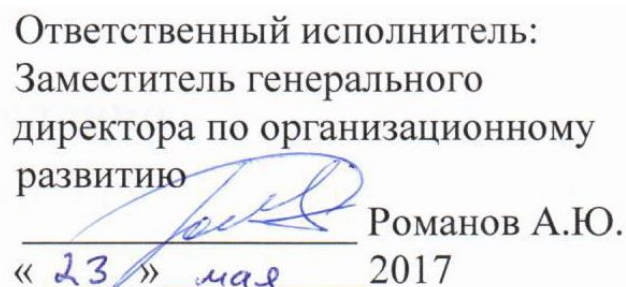 Ответственный исполнитель:
Заместитель генерального
директора по организационному
развитию
Романов А.Ю.
« 23 » мая 2017